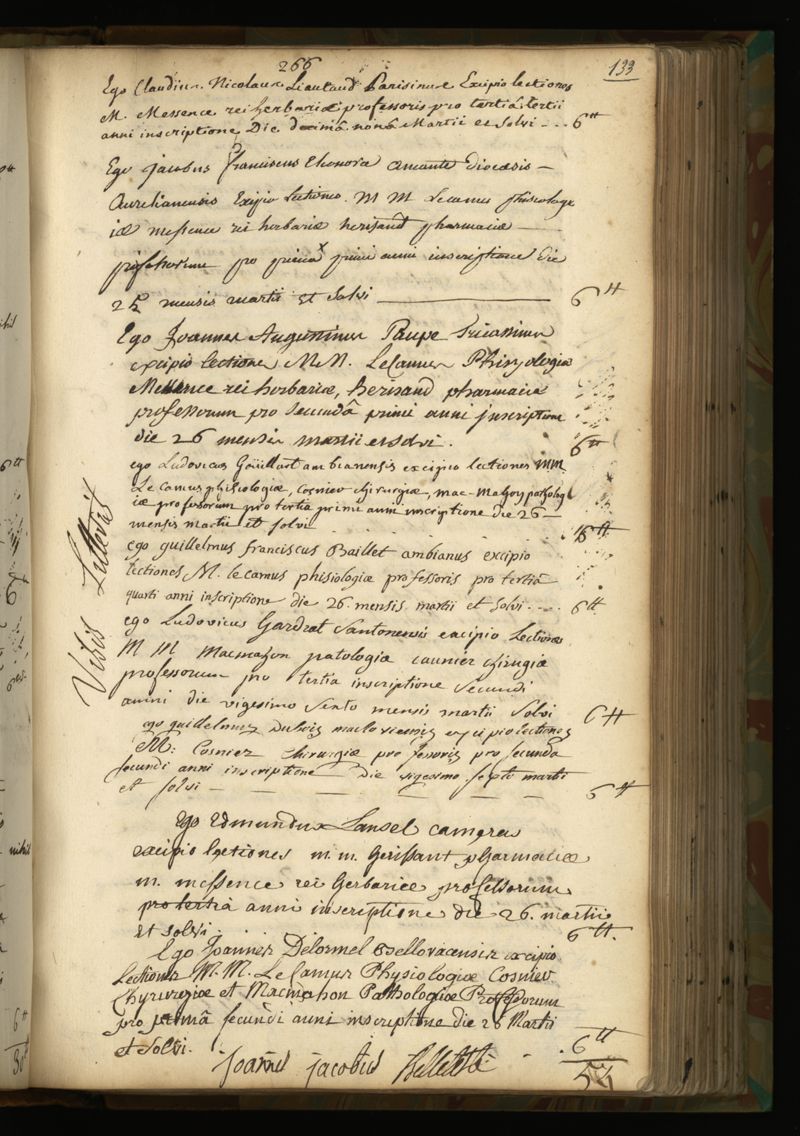 266
133
Ego Claudius Nicolaus Lieutaud Parisinus Excipio lectiones
M. Messence rei herbariæ professoris pro tertiâ tertii
anni inscriptione Die decimâ nonâ Martii et solvi - - - 6 tt
Ego jacobus franciscus Diocæsis -
Aurelianensis Exipio Lectiones. M M Lecamus phisiologi
iæ messence rei herbariæ herissant pharmaciæ
professorum pro prima primi anni inscriptione die
25 mensis martii et solvi 6 tt
Ego Joannes Augustinus Paupe Tricassinus
excipio lectiones M.M. LeCamus Phisyologiæ
Messence rei herbariæ, herissand pharmaciæ
professorum pro secundâ primi anni jnscriptione
die 26 mensis martii et solvi. 6 tt
ego Ludovicus Goüillart ambianensis excipio lectiones MM
Le Camus phisiologiæ, Cosnier chirurgiæ, mac-Mahon patholog
iæ professorum pro tertia primi anni inscriptione die 26 -
mensis martii et solvi 6 tt
ego guillelmus franciscus Baillet ambianus excipio
lectiones M. le camus phisiologiæ professoris pro tertiâ
quarti anni inscriptione die 26. mensis martii et solvi - - - 6 tt
ego Ludovicus Gardrat Santonensis excipio Lectiones
M M Macmahon patologiæ caunier chirugiæ
professorum pro tertia inscriptione secundi
anni die vigesimo sexto mensis martii solvi 6 tt
ego guillelmus Dubois macloviensis excipio lectiones
M: Cosnier chirurgiæ professoris pro secunda
secundi anni inscriptione die vigesimo septi martii
et solvi - - - - - 6 tt
ego Edmundus Lansel
excipio lectiones m. m. Gerissant pharmaciæ
m. messence rei Gerbariæ professorum
pro tertiâ anni inscriptione die 26. martii
et solvi 6 tt.
Ego Joannes Delormel Bellovacensis excipio
Lectiones M. M. Le Camus Physiologiæ Cosnier
Chyrurgiæ et Macmahon Pathologiæ Professorum
pro primâ secundi anni inscriptione die 26 Martii
et solvi. 6 tt
Joannes jacobus Belleteste
54